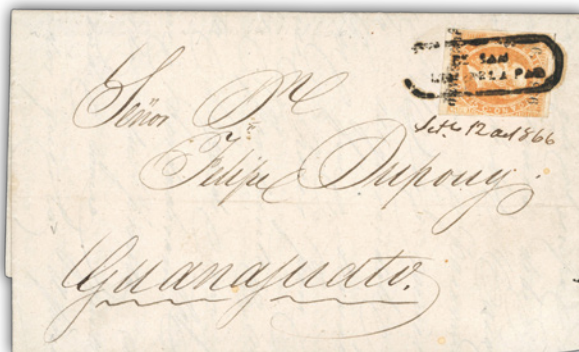 SAN
LUIS DE LA PAZ
Set.e 12 de 1866
Señor Dn
Felipe Dupouy
Guanajuato.